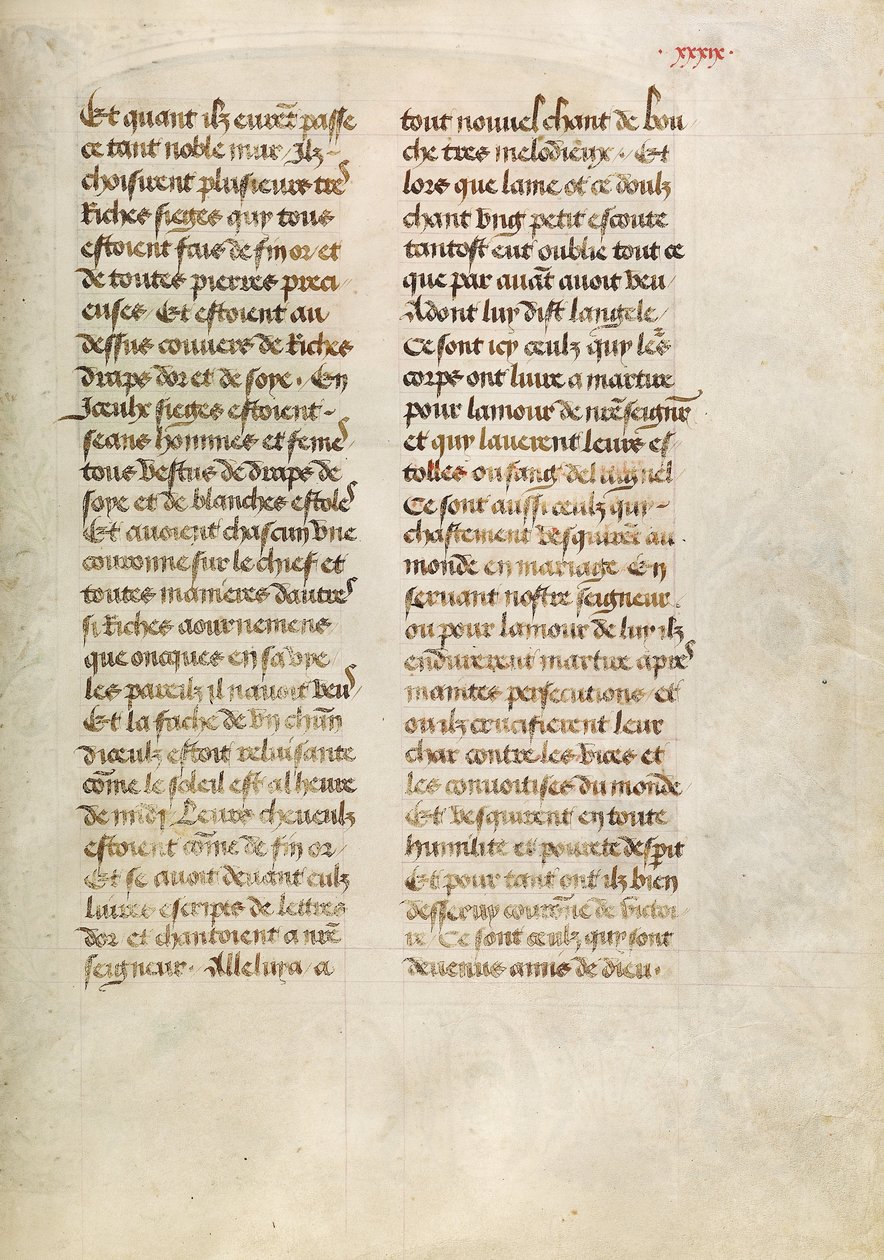 · xxxix ·
Et quant ilz eurẽt passe
ce tant noble mur / Ilz -
choisirent plusieurs tres
Riches sieges quy tous
estoient fais de fin or / et
de toutes pierres preci
euses / Et estoient au
dessus couuers de Riches
draps dor et de soye . En
Iceulx sieges estoient -
seans hommes et femes
tous vestus de draps de
soye et de blanches estoles
Et auoient chascun vne
couronne sur le chief et
toutes manieres dautres
si Riches aournemens
que oncques en sa vye
les pareilz il nauoit veus /
Et la fache de vn chũn
diceulz estoit reluisante
cõme le soleil est a lheure
de midi Leurs cheueulz
estoient cõme de fin or /
Et se auoit deuant eulz
liures escripts de lettres
dor / et chantoient a nr̃e
seigneur . Alleluya / a
tout nouuel chant de bou /
che tres melodieux . Et
lors que lame ot ce doulz
chant vng petit escoute
tantost eut oublie tout ce
que par auãt auoit veu /
Adont luy dist langele /
Ce sont icy ceulz quy les
corps ont liure a martire
pour lamour de nr̃e seignr̃
et quy lauerent leurs es /
tolles ou sang de laignel
Ce sont aussi ceulz quy -
chastement vesquirẽt au .
monde en mariage En
seruant nostre seigneur .
ou pour lamour de luy ilz
endurerent martire apres
maintes persecutions / et
ou ilz crucifierent leur
char contre les vices et
les conuoitises du monde
Et vesquirent en toute
humilite et pourete desp̃it
Et pour tant ont ilz bien
desseruy courõne de victoi -
re / Ce sont ceulz quy sont
deuenus amis de dieu .